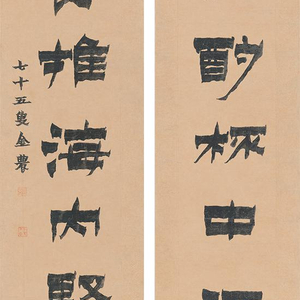 酌杯中
推海内賢
七十五叟金農